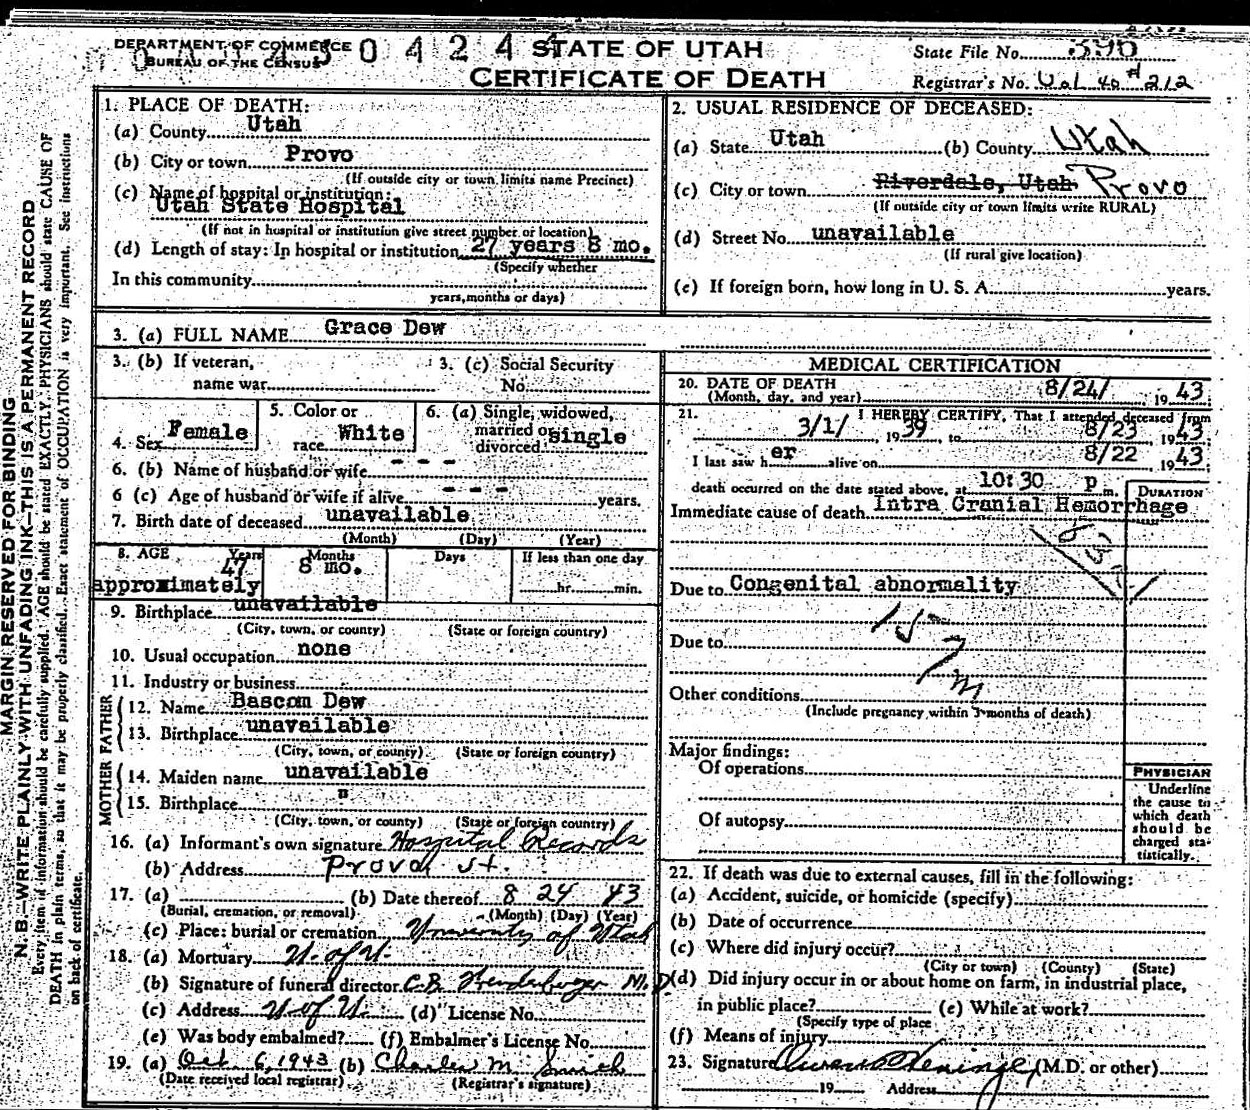 DEPARTMENT OF COMMERCE
BUREAU OF THE CENSUS
0 4 2 4
STATE OF UTAH
CERTIFICATE OF DEATH
State File No. 396
Registrar's No. Ual 40 #212
MARGIN RESERVED FOR BINDING
N. B.—WRITE PLAINLY WITH UNFADING INK—THIS IS A PERMANENT RECORD
Every item of information should be carefully supplied. AGE should be stated EXACTLY. PHYSICIANS should state CAUSE OF
DEATH in plain terms, so that it may be properly classified. Exact statement of OCCUPATION is very important. See instructions
on back of certificate.
1. PLACE OF DEATH:
(a) County Utah
(b) City or town Provo
(If outside city or town limits name Precinct)
(c) Name of hospital or institution:
Utah State Hospital
(If not in hospital or institution give street number or location)
(d) Length of stay: In hospital or institution 27 years 8 mo.
(Specify whether
In this community
years, months or days)
2. USUAL RESIDENCE OF DECEASED:
(a) State Utah (b) County Utah
(c) City or town Riverdale, Utah Provo
(If outside city or town limits write RURAL)
(d) Street No. unavailable
(If rural give location)
(e) If foreign born, how long in U. S. A. years.
3. (a) FULL NAME Grace Dew
3. (b) If veteran, name war
3. (c) Social Security No.
4. Sex Female
5. Color or race White
6. (a) Single, widowed, married or divorced single
6. (b) Name of husband or wife - - -
6 (c) Age of husband or wife if alive - - - years.
7. Birth date of deceased unavailable
(Month) (Day) (Year)
8. AGE Years Months Days If less than one day
47 8 mo.
approximately hr. min.
9. Birthplace unavailable
(City, town, or county) (State or foreign country)
10. Usual occupation none
11. Industry or business
FATHER
12. Name Bascom Dew
13. Birthplace unavailable
(City, town, or county) (State or foreign country)
MOTHER
14. Maiden name unavailable
15. Birthplace "
(City, town, or county) (State or foreign country)
16. (a) Informant's own signature Hospital Records
(b) Address Provo Ut.
17. (a) (b) Date thereof 8 24 43
(Burial, cremation, or removal) (Month) (Day) (Year)
(c) Place: burial or cremation University of Utah
18. (a) Mortuary U. of U.
(b) Signature of funeral director C.B. M.D.
(c) Address U of U. (d) License No.
(e) Was body embalmed? (f) Embalmer's License No.
19. (a) Oct. 6, 1943 (b) Charles M. Smith
(Date received local registrar) (Registrar's signature)
MEDICAL CERTIFICATION
20. DATE OF DEATH 8/24/ 1943
(Month, day, and year)
21. I HEREBY CERTIFY, That I attended deceased from
3/1/, 1939, to 8/23 1943
I last saw her alive on 8/22, 1943
death occurred on the date stated above, at 10:30 p m.
DURATION
Immediate cause of death Intra Cranial Hemorrhage
Due to Congenital abnormality
157
m
Due to
Other conditions
(Include pregnancy within 3 months of death)
Major findings:
Of operations
Of autopsy
PHYSICIAN
Underline
the cause to
which death
should be
charged sta-
tistically.
22. If death was due to external causes, fill in the following:
(a) Accident, suicide, or homicide (specify)
(b) Date of occurrence
(c) Where did injury occur?
(City or town) (County) (State)
(d) Did injury occur in or about home on farm, in industrial place,
in public place? (e) While at work?
(Specify type of place
(f) Means of injury
23. Signature (M.D. or other)
19 Address